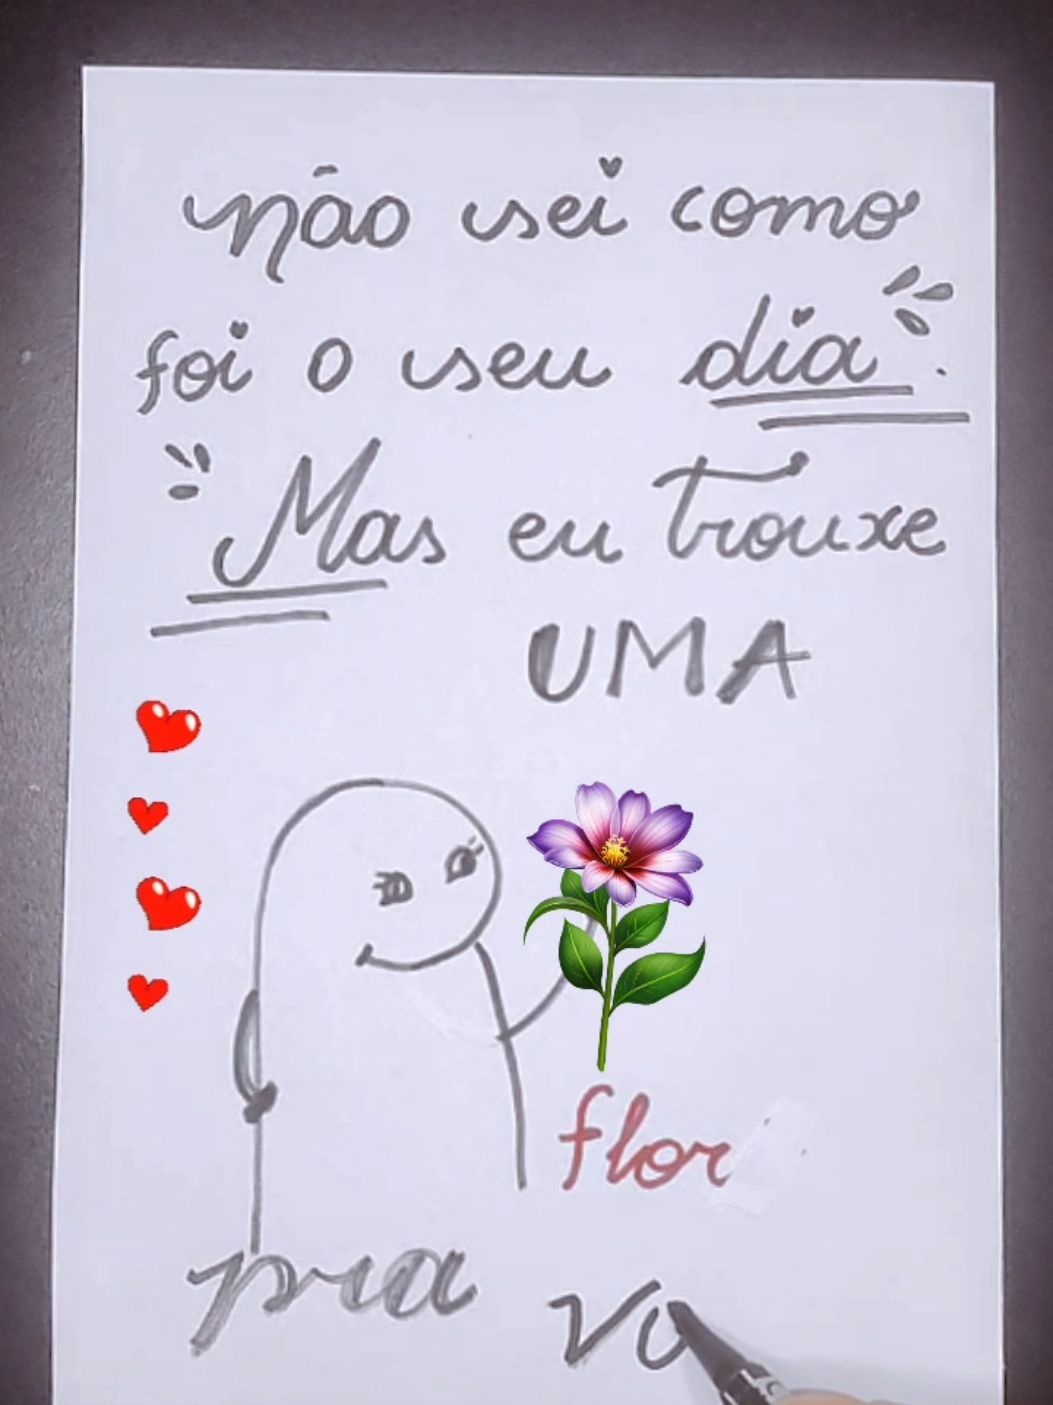 não sei como
foi o seu dia.
Mas eu trouxe
UMA
flor
pra vo